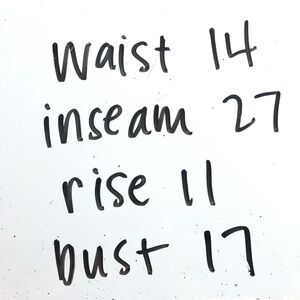 waist 14
inseam 27
rise 11
bust 17